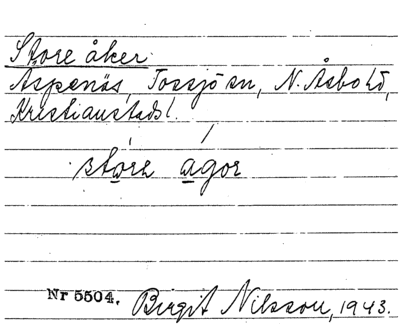 Store åker
Aspenäs, Tossjö sn, N. Åsbo hd,
Kristianstads l.
störe agor
Nr 5504. Birgit Nilsson, 1943.